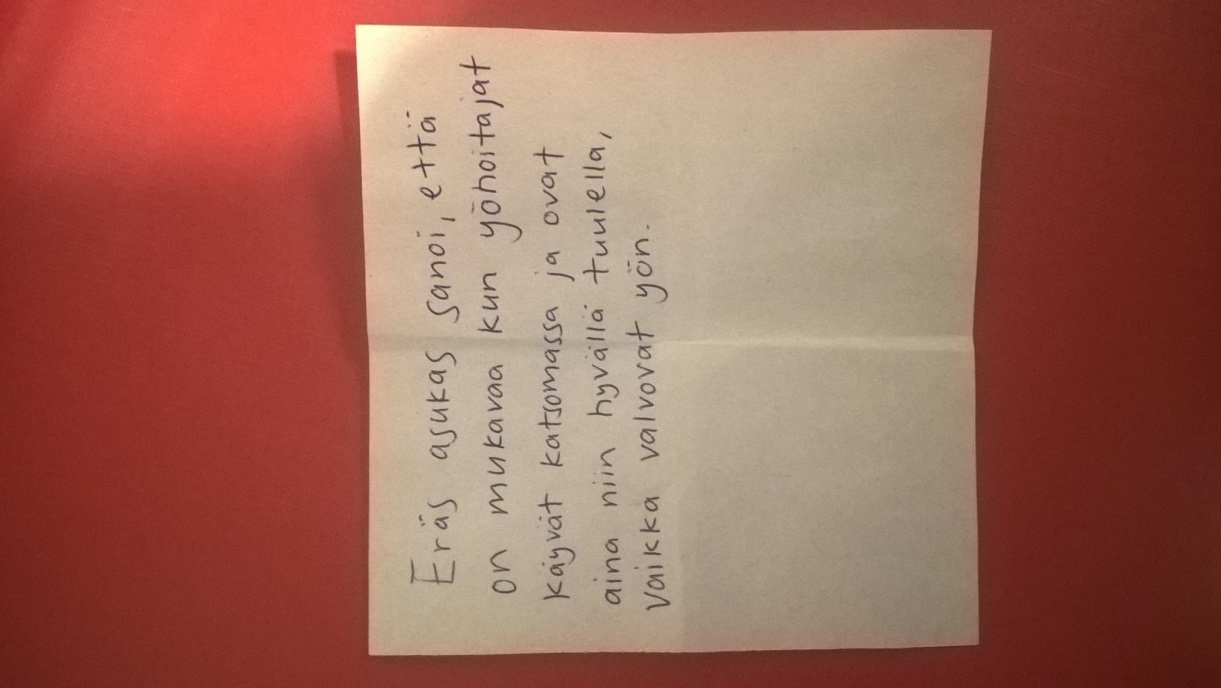 Eräs asukas sanoi, että
on mukavaa kun yöhoitajat
käyvät katsomassa ja ovat
aina niin hyvällä tuulella,
vaikka valvovat yön.